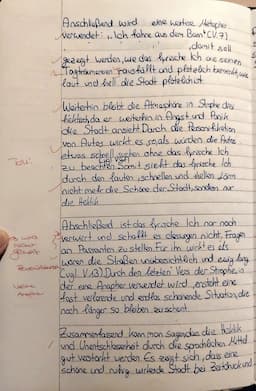 Anschließend wird eine weitere Metapher
verwendet: "Ich fahre aus dem Bann" (V. 7)
, damit soll
gezeigt werden, wie das lyrische Ich aus seinen
Tagträumen rausfällt und plötzlich bemerkt, wie
laut und hell die Stadt plötzlich ist.
Weiterhin bleibt die Atmosphäre in Strophe drei
hektisch, da er weiterhin in Angst und Panik
die Stadt ansieht. Durch die Personifikation
von Autos wirkt es, als würden die Autos
etwas schnell ohne das lyrische Ich
zu beachten. Somit sieht das lyrische Ich
durch den lauten, schnellen und hellen
nicht mehr die Schöne der Stadt, sondern nur
die Hektik
Abschließend ist das lyrische Ich nur noch
verwirrt und schafft es deswegen nicht, Fragen
an Passanten zu stellen. Für ihn wirkt es als
wären die Straßen unübersichtlich und ewig lang
(vgl. V. 13). Durch den letzten Vers der Strophe, in
der eine Anapher verwendet wird, entsteht eine
fast verlorene und endlos scheinende Situation, die
noch länger so bleiben zu scheint.
Zusammenfassend kann man sagen, das die Hektik
und Unentschlossenheit durch die sprachlichen Mittel
gut verstärkt werden. Es zeigt sich, das eine
schöne und ruhig wirkende Stadt bei Zeitdruck und